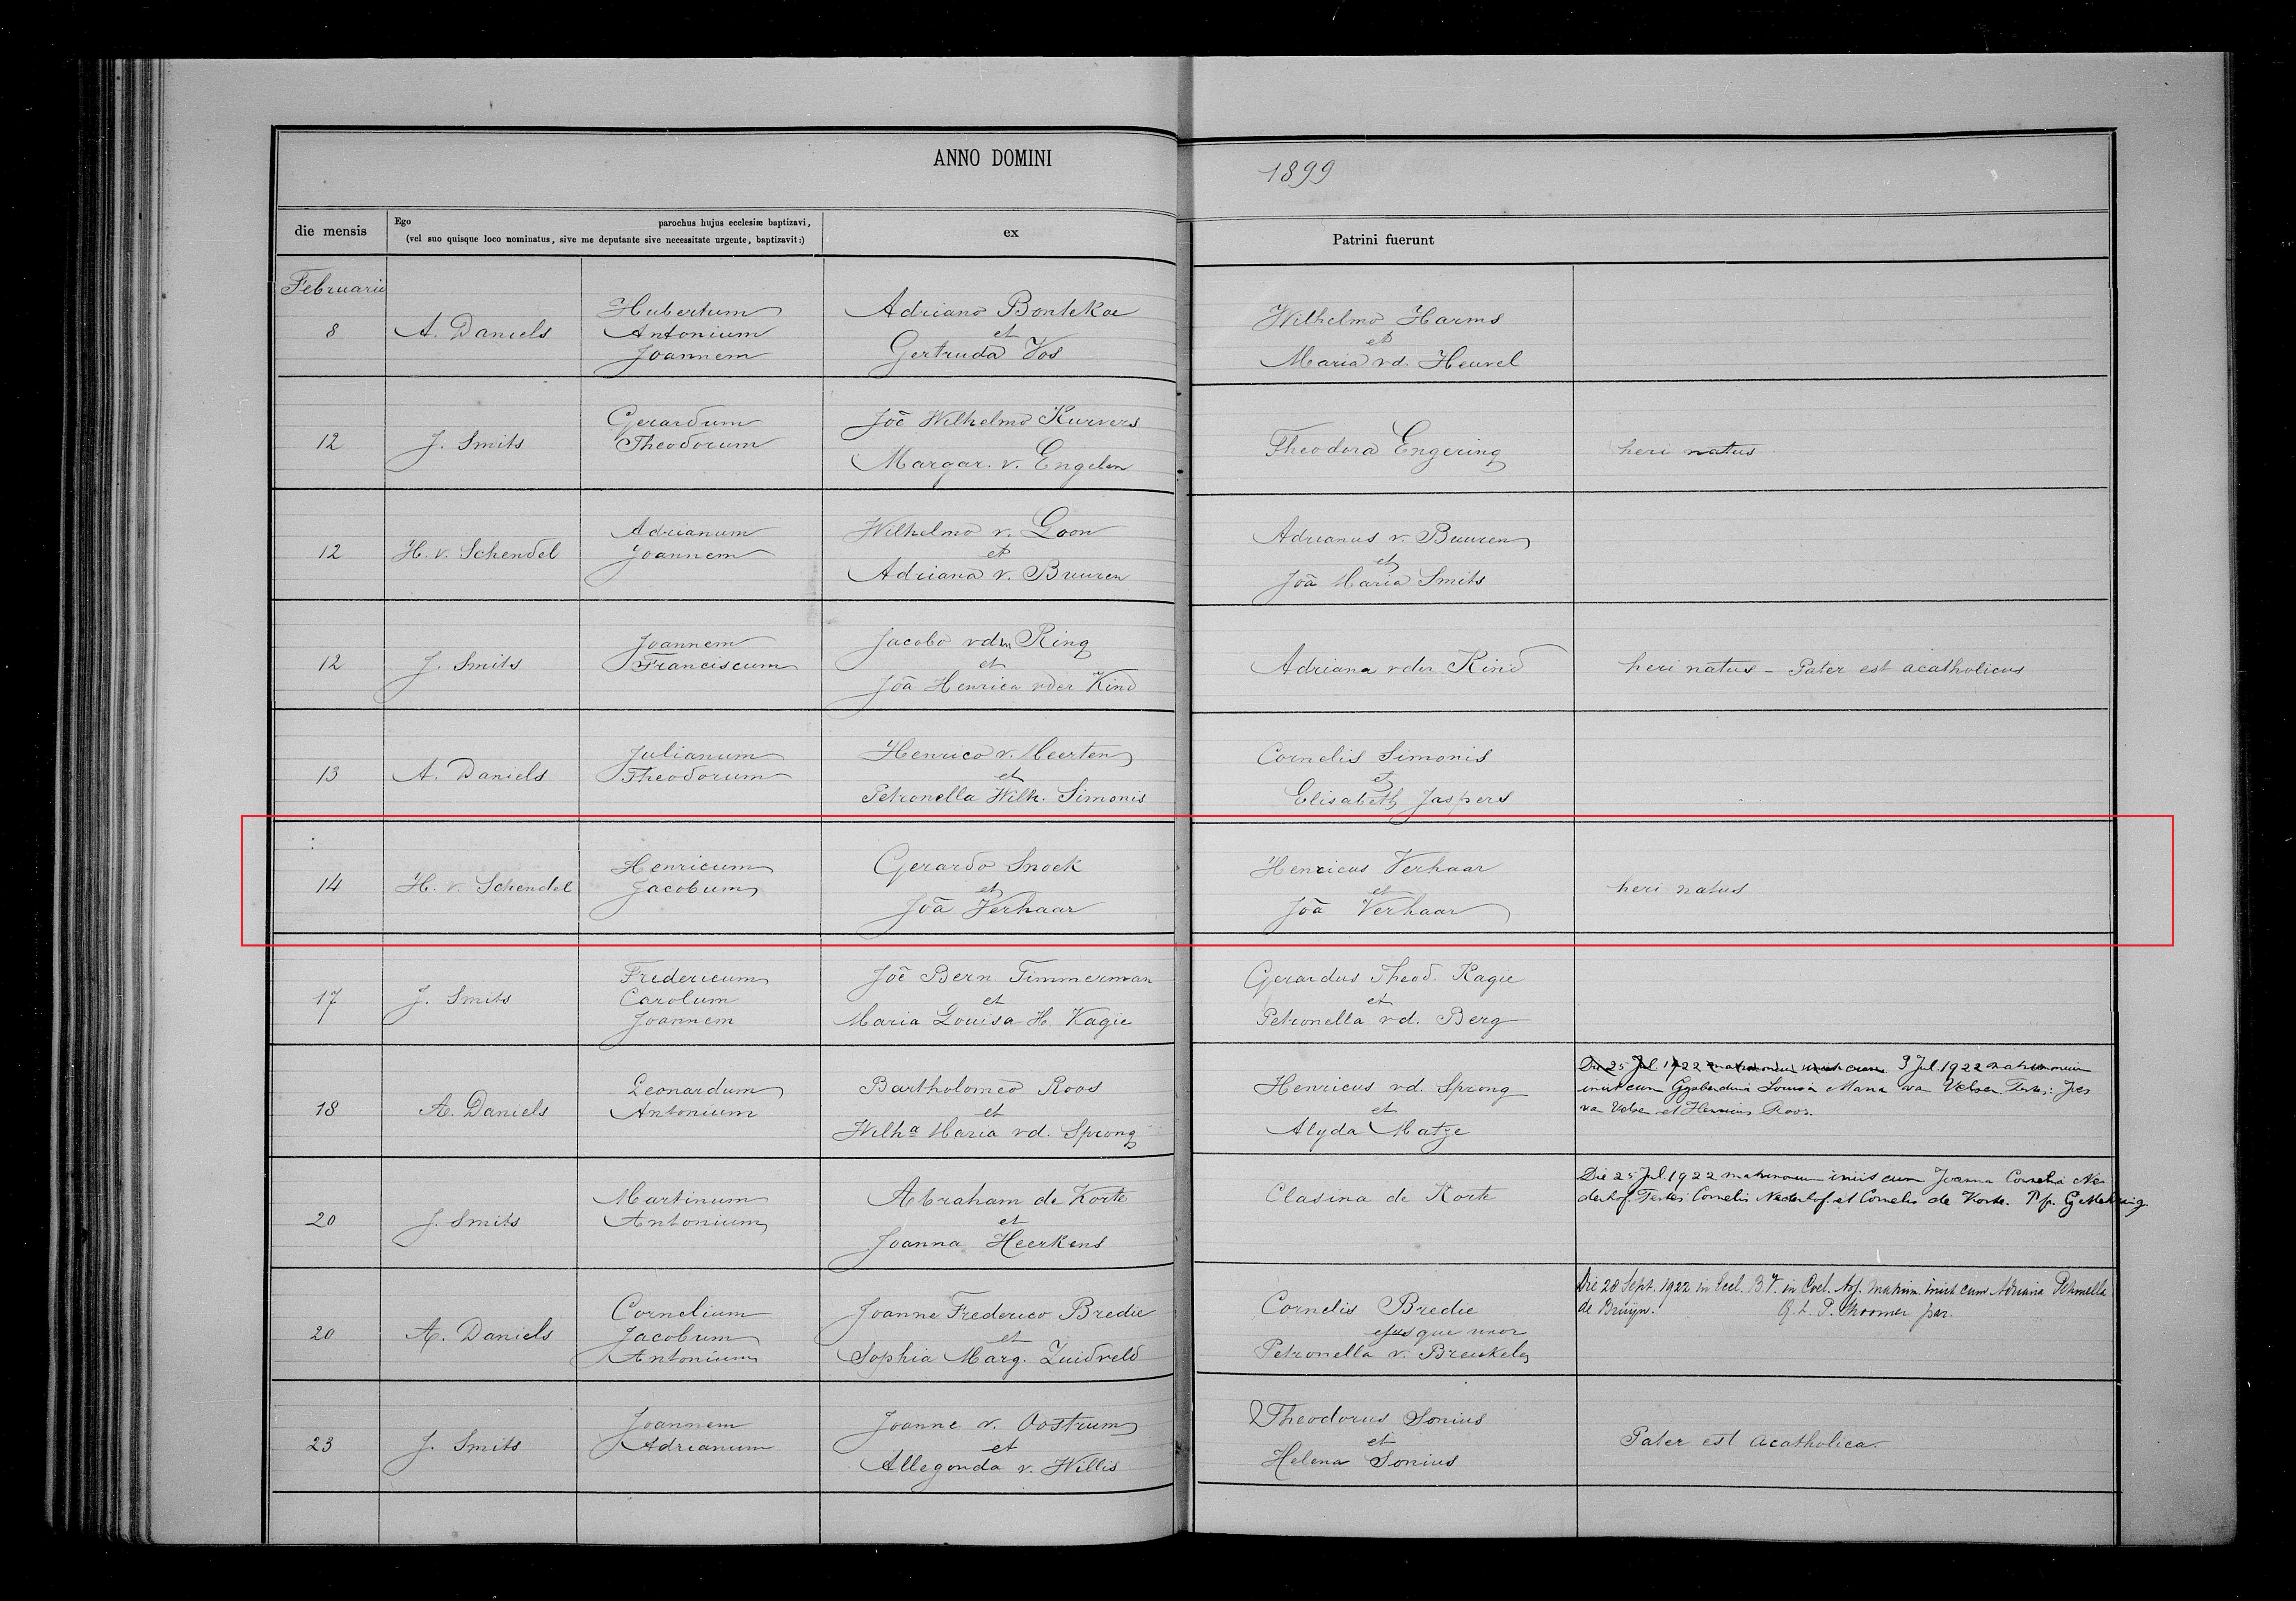 ANNO DOMINI
1899
die mensis
Ego parochus hujus ecclesiæ baptizavi,
(vel suo quisque loco nominatus, sive me deputante sive necessitate urgente, baptizavit:)
ex
Patrini fuerunt
Februarii
8
A. Daniels
Hubertum
Antonium
Joannem
Adriano Bontekoe
et
Gertruda Vos
Wilhelmo Harms
et
Maria vd. Heuvel
12
J. Smits
Gerardum
Theodorum
Joē Wilhelmo Kurvers
Margar. v. Engelen
Theodora Engering
heri natus
12
H. v. Schendel
Adrianum
Joannem
Wilhelmo v. Loon
et
Adriana v. Buuren
Adrianus v. Buuren
et
Joā Maria Smits
12
J. Smits
Joannem
Franciscum
Jacobo vdn Ring
et
Joā Henrica vder Kind
Adriana vder Kind
heri natus - Pater est acatholicus
13
A. Daniels
Julianum
Theodorum
Henrico v. Meerten
et
Petronella Wilh. Simonis
Cornelis Simonis
et
Elisabeth Jaspers
:
14
H. v. Schendel
Henricum
Jacobum
Gerardo Snoek
et
Joā Verhaar
Henricus Verhaar
et
Joā Verhaar
heri natus
17
J. Smits
Fredericum
Carolum
Joannem
Joē Bern. Timmerman
et
Maria Louisa H. Kagie
Gerardus Theod. Kagie
et
Petronella vd. Berg
18
A. Daniels
Leonardum
Antonium
Bartholomeo Roos
et
Wilha Maria vd. Sprong
Henricus vd. Sprong
et
Alyda Matze
Die 25 Jul 1922 matrimonium iniit cum 3 Jul. 1922 matrimonium
iniit cum Gysberdina Louisa Maria van Velsen Testes: Joes
van Velsen et Henricus Roos.
20
J. Smits
Martinum
Antonium
Abraham de Korte
et
Joanna Heerkens
Clasina de Korte
Die 25 Jul. 1922 matrimonium iniit cum Joanna Cornelia Ne-
derhof. Testes Cornelis Nederhof et Cornelis de Korte.
20
A. Daniels
Cornelium
Jacobum
Antonium
Joanne Frederico Bredie
et
Sophia Marg. Zuidveld
Cornelis Bredie
ejusque uxor
Petronella v. Breukelen
Die 20 Sept. 1922 in Eccl. B.V. in Coel. Ass. matrim. iniit cum Adriana Petronella
de Bruijn.
23
J. Smits
Joannem
Adrianum
Joanne v. Oostrum
et
Allegonda v. Willis
Theodorus Sonius
et
Helena Sonius
Pater est acatholica.